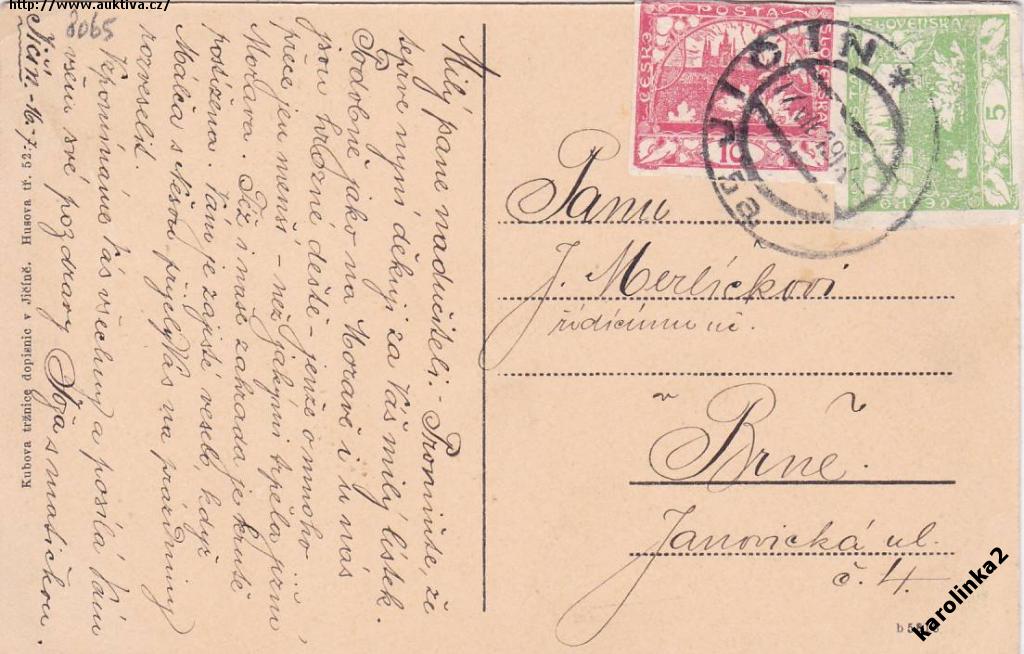 http://www.auktiva.cz/
8065
Milý pane nadučiteli. – Promiňte, že
teprve nyní děkuji za Váš milý lístek.
Podobně jako na Moravě i u nás
jsou hrozné deště – jenže o mnoho
přece jen menší – než jakými trpěla jižní
Morava. Též i naše zahrada je krutě
postižena. Vám je zajisté veselo, když
Malča s přijely Vás na prázdniny
rozveselit.
Vzpomínáme Vás všechny a posílá Vám
všem své pozdravy s matičkou.
Jičín – 16.-7.
Kubova tržnice dopisnic v Jičíně. Husova tř. 52.
POŠTA
ČESKO
SLOVENSKÁ
10
SLOVENSKÁ
POŠTA
ČESKO
5
JIČÍN *
Panu
J. Merlíčkovi
řídícímu uč.
v
Brně.
Janovická ul.
č. 4.
karolinka2